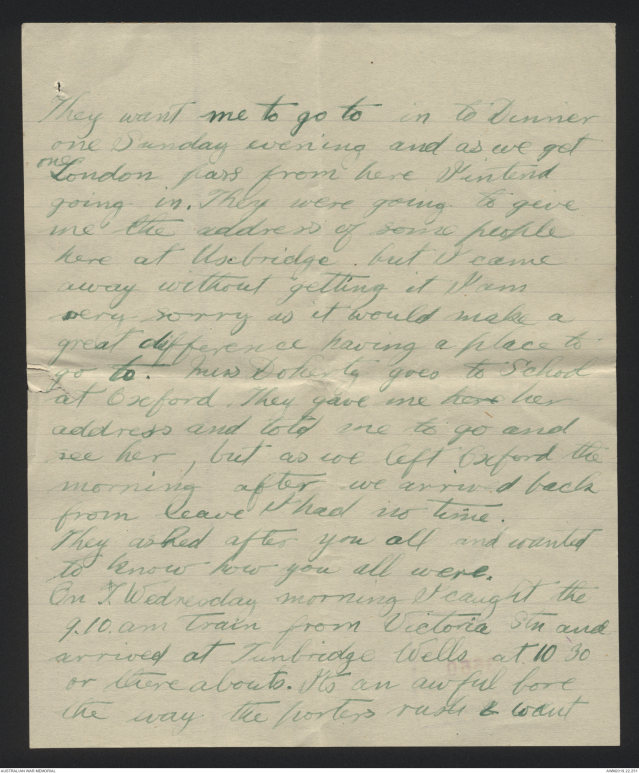 They want me to go to in to Dinner
one Sunday evening and as we get
one
London pass from here I intend
going in. They were going to give
me the address of some people
here at Uxbridge. but I came
away without getting it I am
very sorry as it would make a
great difference having a place to
go to. Miss Doherty goes to School
at Oxford. They gave me her
address and told me to go and
see her, but as we left Oxford the
morning after we arrived back
from leave I had no time.
They asked after you all and wanted
to know how you all were.
On Wednesday morning I caught the
9.10. am train from Victoria Stn and
arrived at Tunbridge Wells at 10 30
or there abouts. Its an awful bore
the way the porters rush & want
AUSTRALIAN WAR MEMORIAL